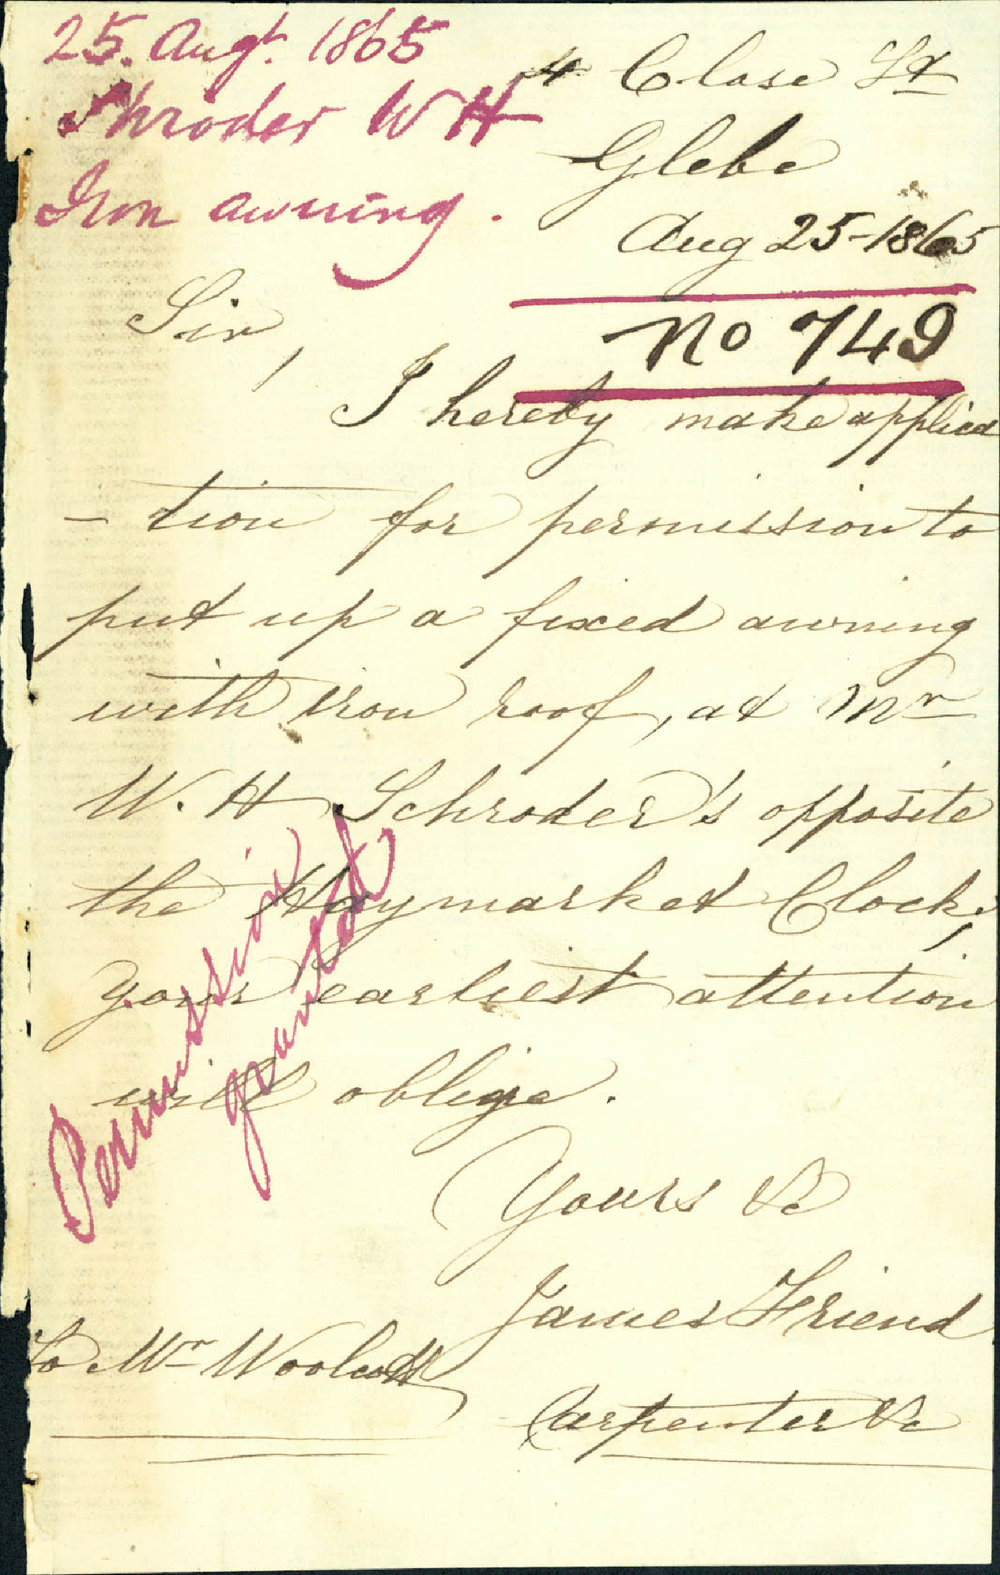 25. Augt. 1865
Shroder W H
Iron awning.
4 Close St
Glebe
Aug 25-1865
No 749
Sir,
I hereby make applica
- tion for permission to
put up a fixed awning
with iron roof, at Mr
W. H Schroder's opposite
the Haymarket Clock,
your earliest attention
will oblige.
Permission
granted
Yours &c
James Friend
Carpenter &c
To Mr Woolcott